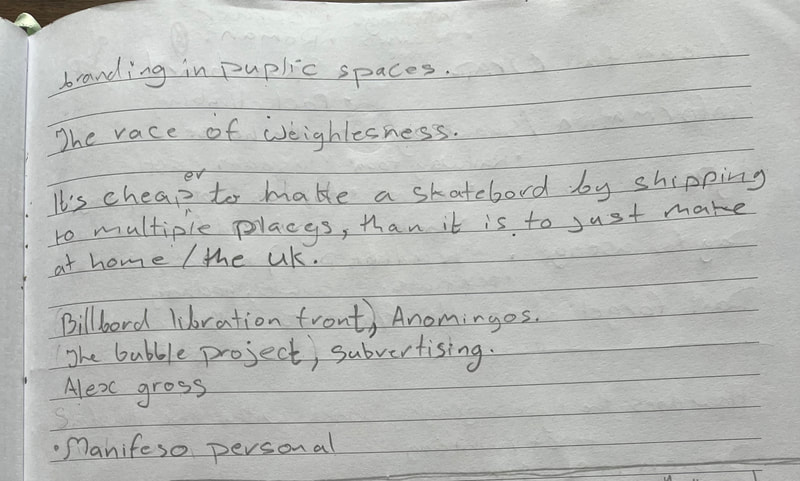 branding in puplic spaces.
The race of weighlesness.
It's cheaper to make a skatebord by shipping
to multiple places, than it is to just make
at home / the uk.
Billbord libration front, Anomingos.
The bubble project, subvertising.
Alex gross
• Manifeso personal